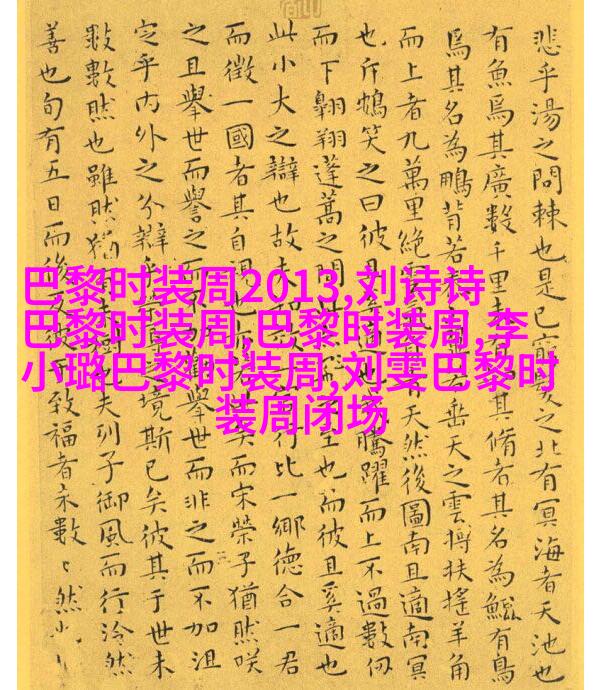 巴黎时装周2013,刘诗诗
巴黎时装周,巴黎时装周,李
小璐巴黎时装周,刘雯巴黎时
装周闭场
悲乎湯之問棘也是已窮髮之北有冥海者天池也
有魚焉其廣數千里未有其脩者其名為鯤有鳥
焉其名為鵬背若垂天之雲摶扶搖羊角
而上者九萬里絕雲天然後圖南且適南冥
也斥鴳笑之曰彼且奚適也騰躍而上不過數仞
而下翱翔蓬蒿之間此至也而彼且奚適也
此小大之辯也故夫行比一鄉德合一君
而徵一國者其自視也矣而宋榮子猶然咲
之且舉世而譽之而不加舉世而非之而不加沮
定乎內外之分辯乎境斯已矣彼其于世未
數數然也雖然猶有未樹也夫列子御風而行泠然
善也旬有五日而後反彼致福者未數〻然也